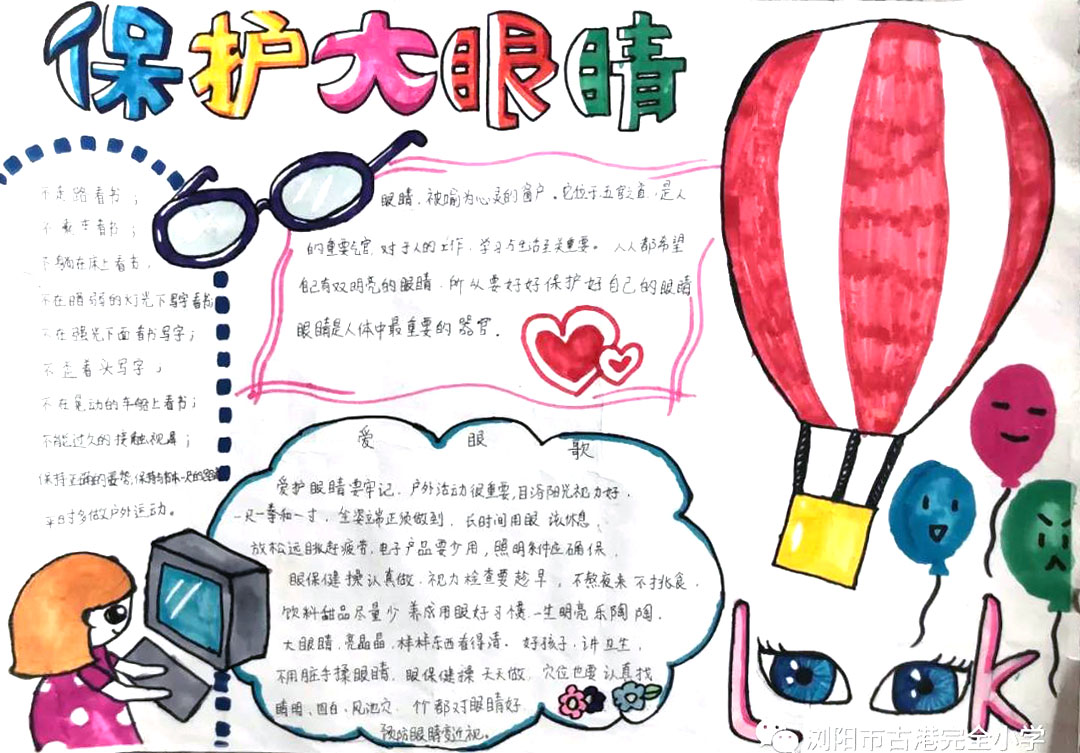 保护大眼睛
不走路看书；
不乘车看书；
不躺在床上看书，
不在暗弱的灯光下写字看书
不在强光下面看书写字；
不歪着头写字，
不在晃动的车船上看书；
不能过久的接触视屏；
保持正确的姿势，保持与书本一尺的距离
平时多做户外运动。
眼睛，被喻为心灵的窗户。它位于五官之首，是人
的重要气官，对于人的工作，学习与生活至关重要。人人都希望
自己有双明亮的眼睛，所以要好好保护好自己的眼睛
眼睛是人体中最重要的器官。
爱眼歌
爱护眼睛要牢记，户外活动很重要，目浴阳光视力好，
一尺一拳和一寸，坐姿端正须做到，长时间用眼该休息，
放松远眺赶疲劳，电子产品要少用，照明条件应确保，
眼保健操认真做，视力检查要趁早，不熬夜来不挑食，
饮料甜品尽量少 养成用眼好习惯，一生明亮乐陶陶，
大眼睛，亮晶晶，样样东西看得清。好孩子，讲卫生，
不用脏手揉眼睛，眼保健操天天做，穴位也要认真找
睛明、四白、风池穴，个个都对眼睛好
预防眼睛患近视。
look
浏阳市古港完全小学